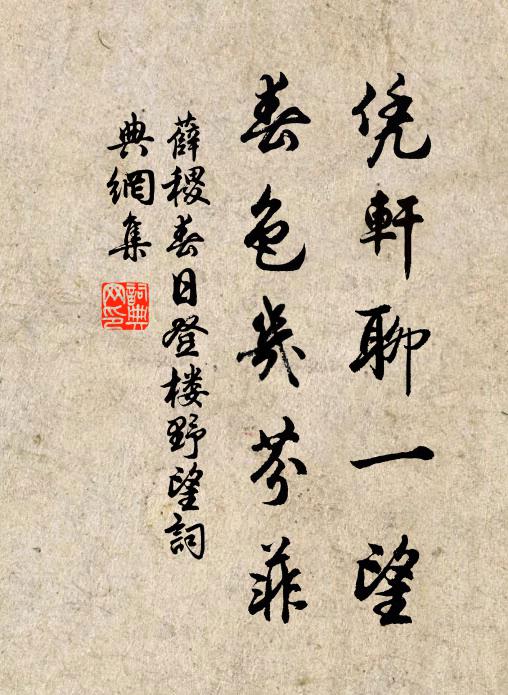 凭軒聊一望
春色幾芬菲
薛稷春日登楼野望詞
典網集
詞典网印